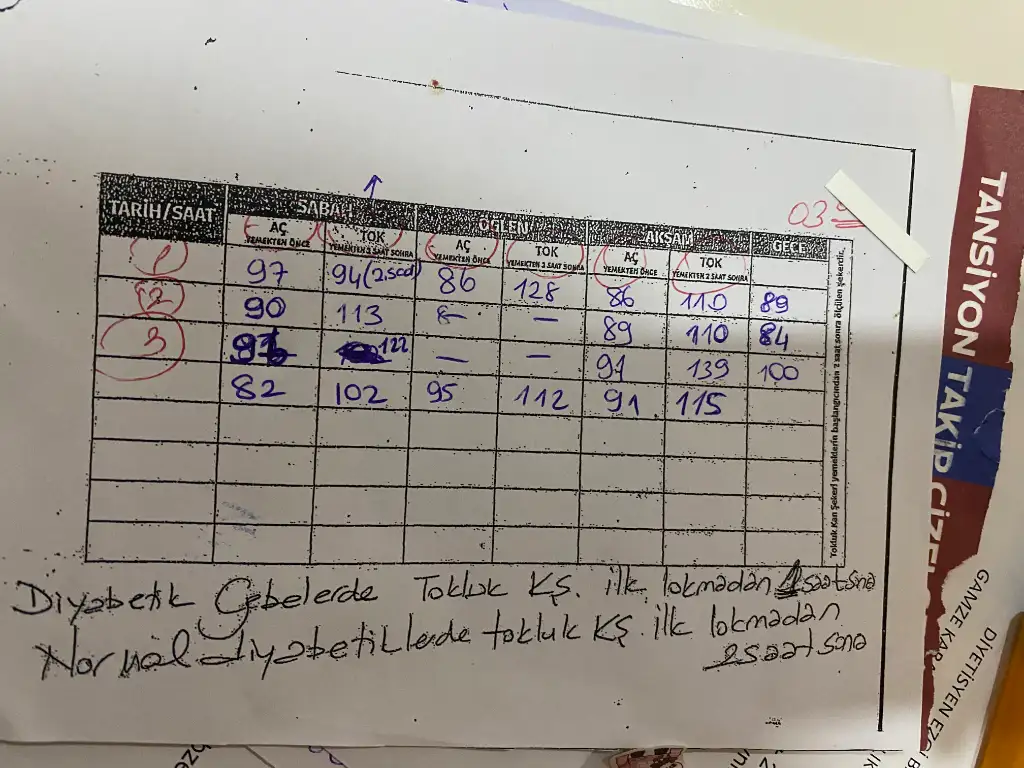 03
TARİH/SAAT SABAH ÖĞLEN AKŞAM GECE
AÇ TOK AÇ TOK AÇ TOK
YEMEKTEN ÖNCE YEMEKTEN 2 SAAT SONRA YEMEKTEN ÖNCE YEMEKTEN 2 SAAT SONRA YEMEKTEN ÖNCE YEMEKTEN 2 SAAT SONRA
1 97 94 (2.saat) 86 128 86 110 89
2 90 113 — 89 110 84
3 122 — — 91 139 100
82 102 95 112 91 115
Tokluk Kan Şekeri yemeklerin başlangıcından 2 saat sonra ölçülen şekerdir.
Diyabetik Gebelerde Tokluk KŞ. ilk lokmadan 1 saat sona
Normal diyabetiklerde tokluk KŞ. ilk lokmadan
2 saat sona
TANSİYON TAKİP ÇİZEL
GAMZE KARA
DİYETİSYEN EZGİ